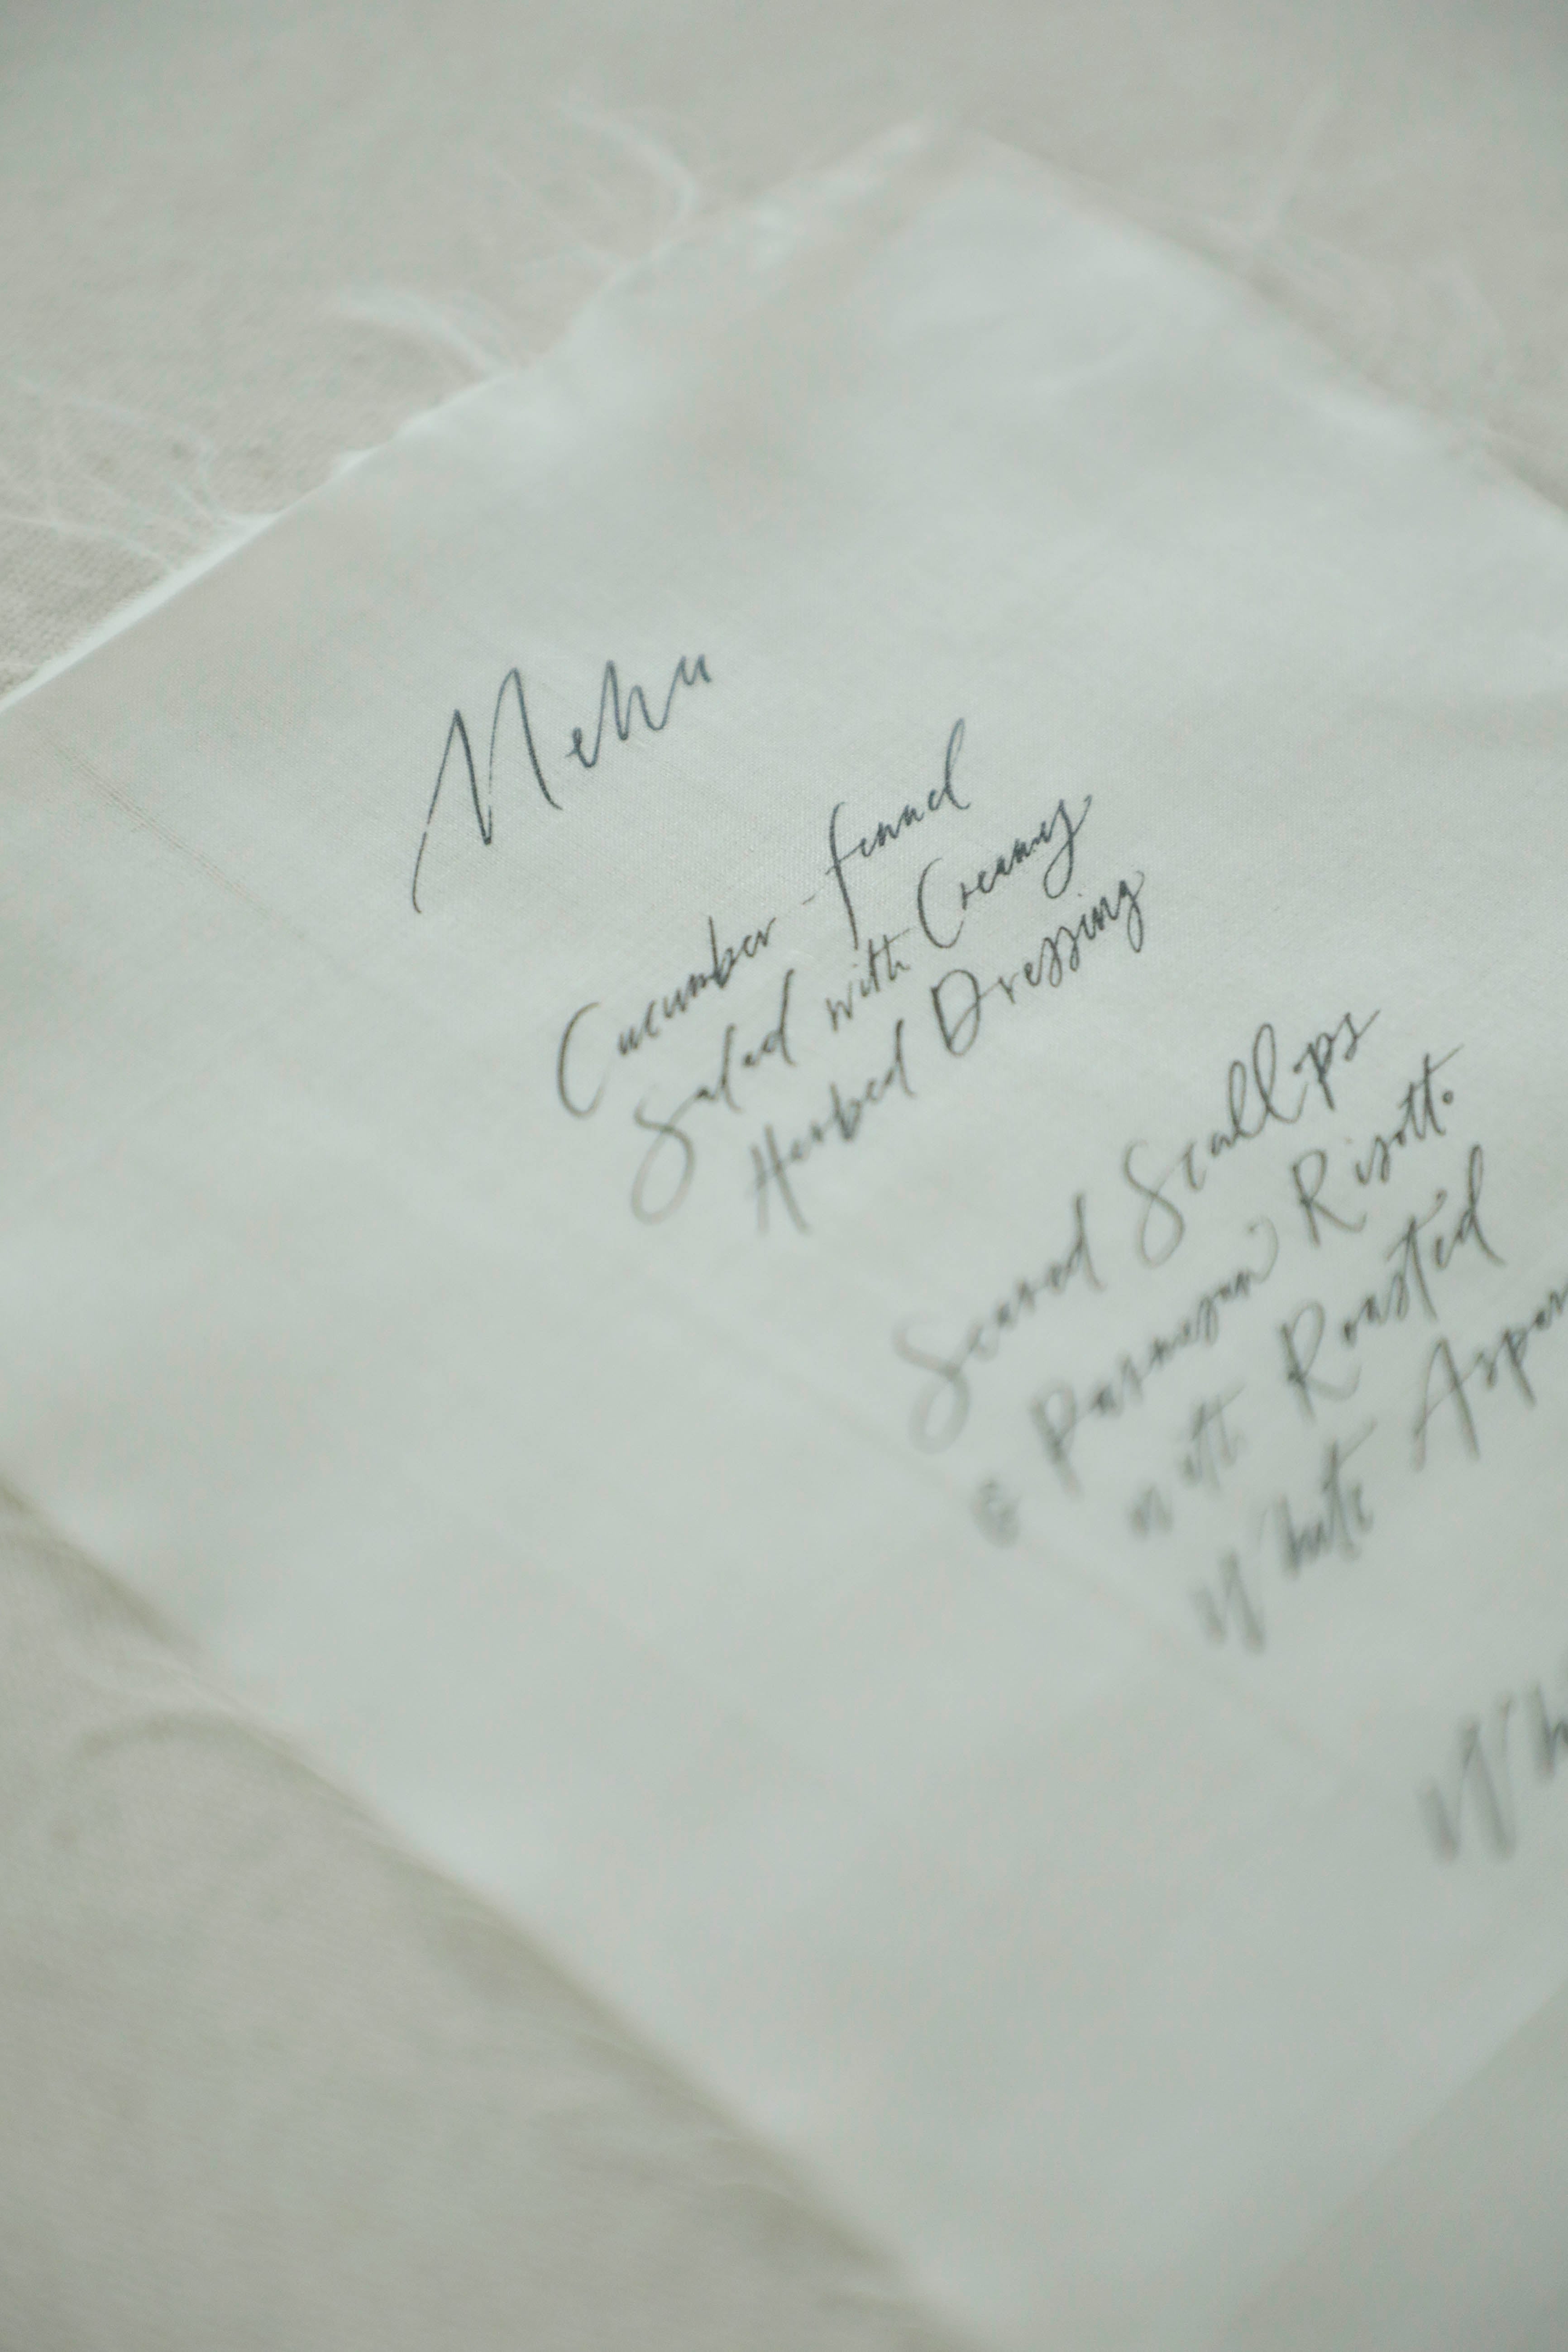 Menu
Cucumber - fennel
Salad with Creamy
Herbed Dressing
Seared Scallops
& Parmesan Risotto
with Roasted
White Aspar
Wh